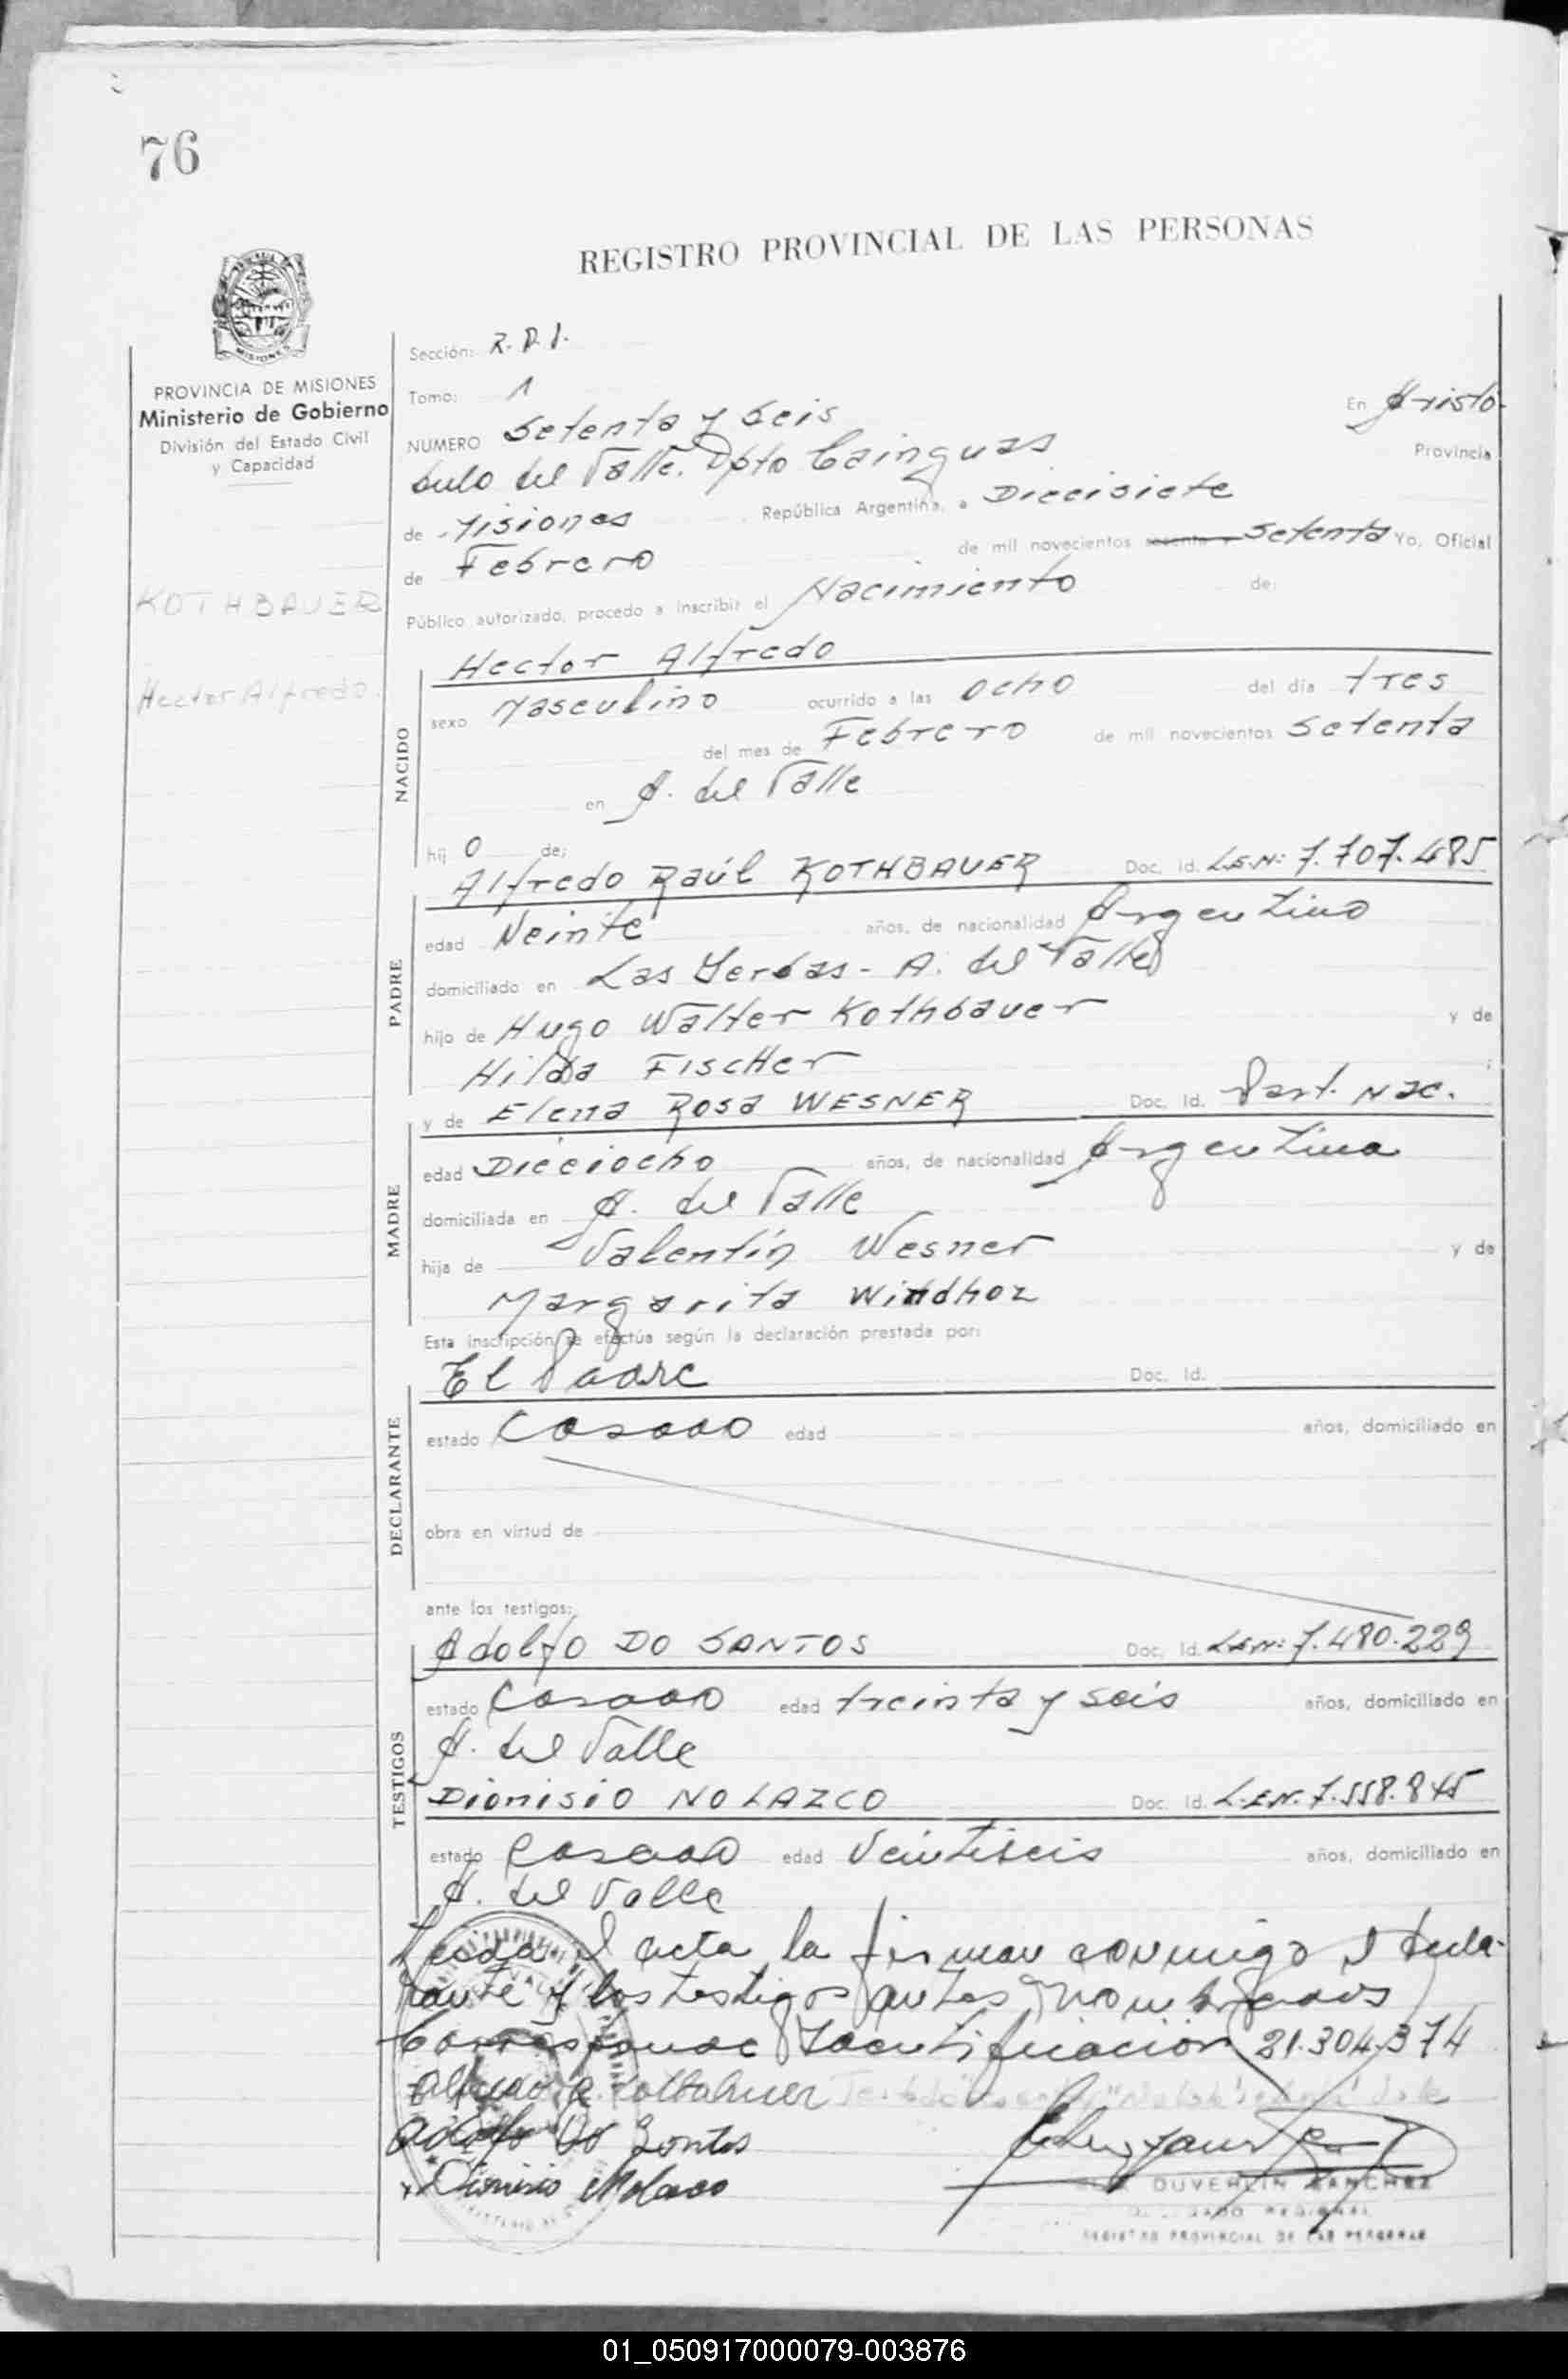 76
REGISTRO PROVINCIAL DE LAS PERSONAS
MISIONES
PROVINCIA DE MISIONES
Ministerio de Gobierno
División del Estado Civil
y Capacidad
KOTHBAUER
Hector Alfredo.
Sección: R.P.1.
Tomo: 1
NUMERO Setenta y Seis En Aristó-
bulo del Valle. Dpto Cainguas Provincia
de Misiones República Argentina, a Diecisiete
de Febrero de mil novecientos Setenta Yo, Oficial
Público autorizado, procedo a inscribir el Nacimiento de:
NACIDO
Hector Alfredo
sexo Masculino ocurrido a las ocho del día tres
del mes de Febrero de mil novecientos Setenta
en A. del Valle
hij o de:
PADRE
Alfredo Raúl KOTHBAUER Doc. Id. L.E.N: 7.707.485
edad Veinte años, de nacionalidad Argentino
domiciliado en Las Yerbas - A. del Valle
hijo de Hugo Walter Kothbauer y de
Hilda FiscHer
y de Elena Rosa WESNER Doc. Id. Part. Nac.
MADRE
edad Dieciocho años, de nacionalidad Argentina
domiciliada en A. del Valle
hija de Valentín Wesner y de
Margarita Windhoz
Esta inscripción se efectúa según la declaración prestada por:
DECLARANTE
El Padre Doc. Id.
estado Casado edad años, domiciliado en
obra en virtud de
ante los testigos:
TESTIGOS
Adolfo DO SANTOS Doc. Id. L.E.N: 7.480.229
estado Casado edad treinta y seis años, domiciliado en
A. del Valle
Dionisio NOLAZCO Doc. Id. L.E.N. 7.558.845
estado Casado edad Veintiseis años, domiciliado en
A. del Valle
Leída el acta la firman conmigo el decla-
rante y los testigos antes nombrados
Corresponde Identificación 21.304.374
Alfredo R. Kothbauer
Adolfo Do Santos
Dionisio Nolasco
DUVERLIN SANCHEZ
REGIONAL
REGISTRO PROVINCIAL DE LAS PERSONAS
01_050917000079-003876